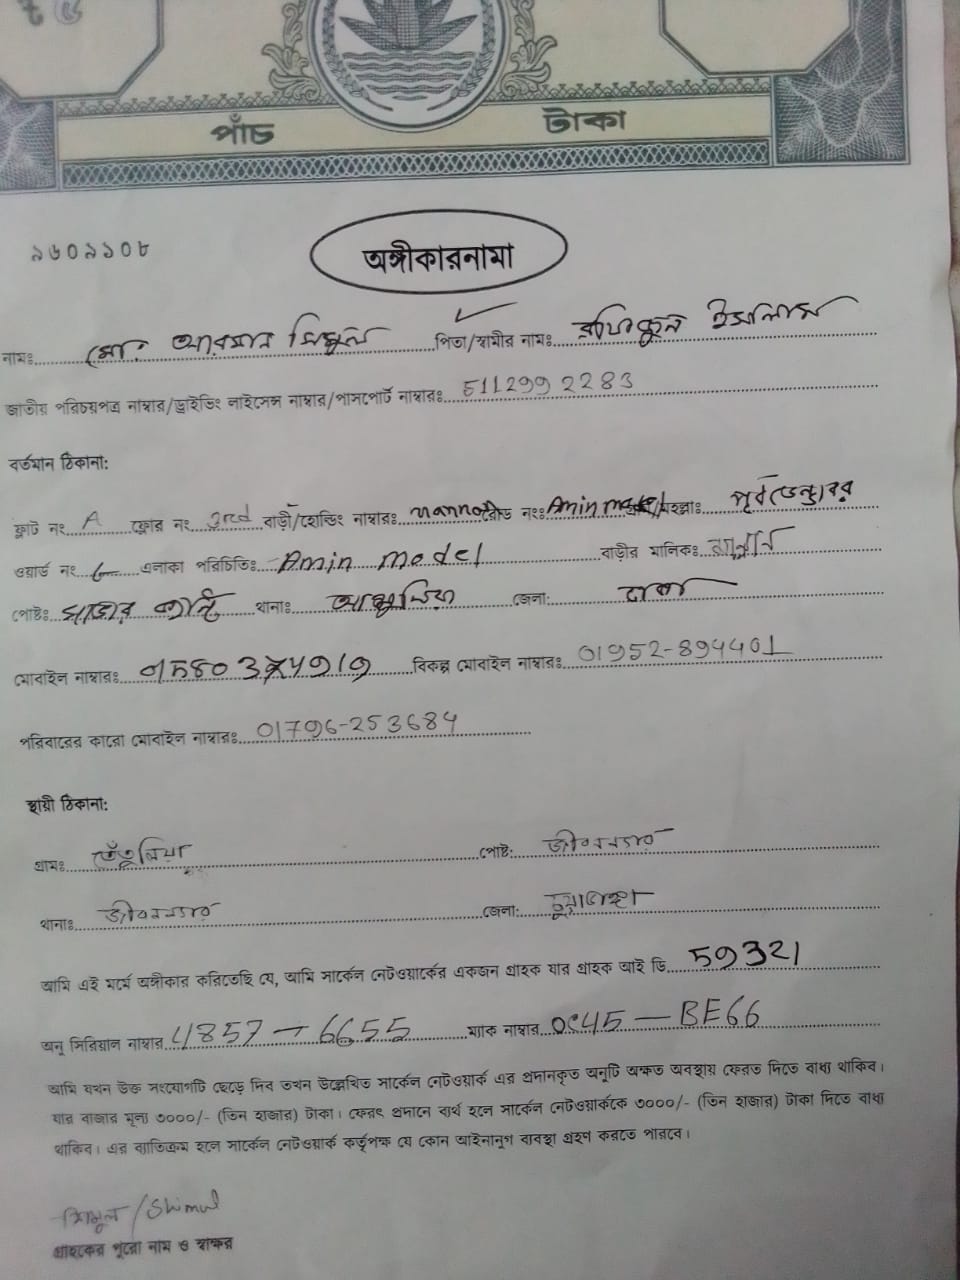 পাঁচ টাকা
৯৬০৯১০৮
অঙ্গীকারনামা
নাম: মোঃ শিমুল পিতা/স্বামীর নাম: রফিকুল ইসলাম
জাতীয় পরিচয়পত্র নাম্বার/ড্রাইভিং লাইসেন্স নাম্বার/পাসপোর্ট নাম্বারঃ 5112992283
বর্তমান ঠিকানা:
ফ্লাট নং A ফ্লোর নং 3rd বাড়ী/হোল্ডিং নাম্বারঃ mannan রোড নং: Amin model মহল্লাঃ
ওয়ার্ড নং 6 এলাকা পরিচিতি: Amin model বাড়ীর মালিক: মান্নান
পোষ্টঃ থানাঃ আশুলিয়া জেলা: ঢাকা
মোবাইল নাম্বারঃ বিকল্প মোবাইল নাম্বারঃ 01952-894401
পরিবারের কারো মোবাইল নাম্বারঃ 01796-253684
স্থায়ী ঠিকানা:
গ্রামঃ তেঁতুলিয়া পোষ্ট: জীবননগর
থানাঃ জীবননগর জেলা: চুয়াডাঙ্গা
আমি এই মর্মে অঙ্গীকার করিতেছি যে, আমি সার্কেল নেটওয়ার্কের একজন গ্রাহক যার গ্রাহক আই ডি 59321
অনু সিরিয়াল নাম্বার 4857 - 6655 ম্যাক নাম্বার - BE66
আমি যখন উক্ত সংযোগটি ছেড়ে দিব তখন উল্লেখিত সার্কেল নেটওয়ার্ক এর প্রদানকৃত অনুটি অক্ষত অবস্থায় ফেরত দিতে বাধ্য থাকিব।
যার বাজার মূল্য ৩০০০/- (তিন হাজার) টাকা। ফেরৎ প্রদানে ব্যর্থ হলে সার্কেল নেটওয়ার্ককে ৩০০০/- (তিন হাজার) টাকা দিতে বাধ্য
থাকিব। এর ব্যাতিক্রম হলে সার্কেল নেটওয়ার্ক কর্তৃপক্ষ যে কোন আইনানুগ ব্যবস্থা গ্রহণ করতে পারবে।
শিমুল / Shimul
গ্রাহকের পুরো নাম ও স্বাক্ষর